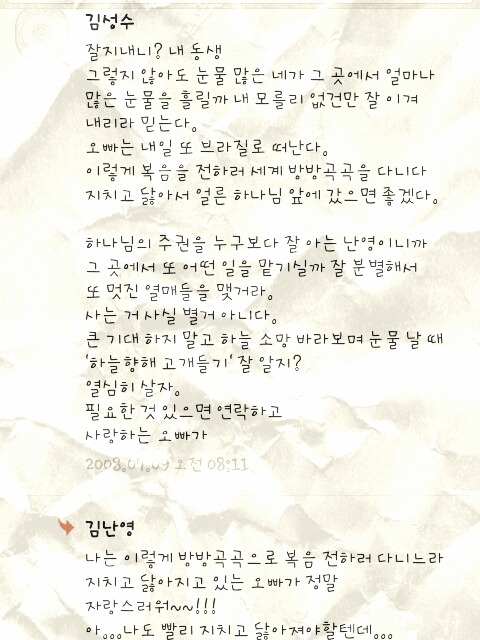 김성수
잘지내니? 내 동생
그렇지 않아도 눈물 많은 네가 그 곳에서 얼마나
많은 눈물을 흘릴까 내 모를리 없건만 잘 이겨
내리라 믿는다.
오빠는 내일 또 브라질로 떠난다.
이렇게 복음을 전하러 세계 방방곡곡을 다니다
지치고 닳아서 얼른 하나님 앞에 갔으면 좋겠다.
하나님의 주권을 누구보다 잘 아는 난영이니까
그 곳에서 또 어떤 일을 맡기실까 잘 분별해서
또 멋진 열매들을 맺거라.
사는 거 사실 별거 아니다.
큰 기대 하지 말고 하늘 소망 바라보며 눈물 날 때
'하늘향해 고개들기' 잘 알지?
열심히 살자.
필요한 것 있으면 연락하고
사랑하는 오빠가
오전 08:11
김난영
나는 이렇게 방방곡곡으로 복음 전하러 다니느라
지치고 닳아지고 있는 오빠가 정말
자랑스러워~~!!!
아,,,나도 빨리 지치고 닳아져야할텐데,,,